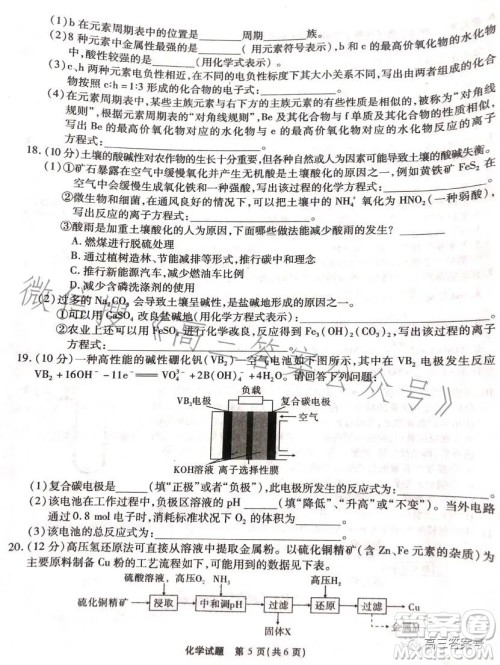 (1)b在元素周期表中的位置是______周期______族。
(2)8种元素中金属性最强的是______(用元素符号表示),b和c的最高价氧化物的水化物
中,酸性较强的是______(用化学式表示)。
(3)c、h两种元素电负性相近,在不同的电负性标度下其大小关系不同,写出由两者组成的化合
物按照c:h=1:3形成的化合物的电子式:______。
(4)在元素周期表中,某些主族元素与右下方的主族元素的有些性质是相似的,被称为“对角线
规则”,根据元素周期表的“对角线规则”,Be及其化合物与f单质及其化合物的化学性质相
似,写出Be的最高价氧化物对应的水化物与e的最高价氧化物对应的水化物反应的离子
方程式:______。
18.(10分)土壤的酸碱性对农作物的生长十分重要,但各种自然或人为因素可能导致土壤的酸碱失衡。
(1)①矿石暴露在空气中缓慢氧化并产生无机酸是土壤酸化的原因之一,例如黄铁矿FeS₂在
空气中会缓慢生成氧化铁和一种强酸,写出该过程的化学方程式:______。
②微生物和细菌,在通风良好的情况下,可以把土壤中的NH₄⁺氧化为HNO₂(一种弱酸),
写出反应的离子方程式:______。
③酸雨是加重土壤酸化的人为原因,下面哪些做法不能减少酸雨的发生?______
A.燃煤进行脱硫处理
B.通过植树造林等方式,践行低碳中和理念
C.推行新能源汽车,减少燃油车比例
D.减少含磷洗涤剂的使用
(2)过多的Na₂CO₃会导致土壤呈碱性,是盐碱地形成的原因之一。
①可以用CaSO₄改良盐碱地,写出反应的化学方程式:______。
②农业上还可以用FeSO₄进行化学改良,反应得到Fe₃(OH)₂(CO₃)₂,写出该过程的离子
方程式:______。
19.(10分)一种高性能的碱性硼化钒(VB₂)—空气电池如下图所示,其中在VB₂电极发生反应
VB₂+16OH⁻-11e⁻═VO₄³⁻+2B(OH)₄⁻+4H₂O。请回答下列问题:
负载
VB₂电极 复合碳电极
空气
KOH溶液 离子选择性膜
(1)复合碳电极是______(填“正极”或者“负极”),此电极所发生的反应式为:______。
(2)该电池在工作过程中,负极区溶液的pH______(填“降低”、“升高”或“不变”)。当外电路
通过0.8 mol电子时,消耗标准状况下O₂的体积为______。
(3)该电池的总反应式为:______。
20.(12分)高压氢还原法可直接从溶液中提取金属粉。以硫化铜精矿(含Zn、Fe元素的杂质)为
主要原料制备Cu粉的工艺流程如下,可能用到的数据见下表。
硫酸溶液、高压O₂ NH₃ 高压H₂
硫化铜精矿 浸取 中和调pH 过滤 还原 过滤 Cu
固体X 金属M
化学试题 第5页(共6页)